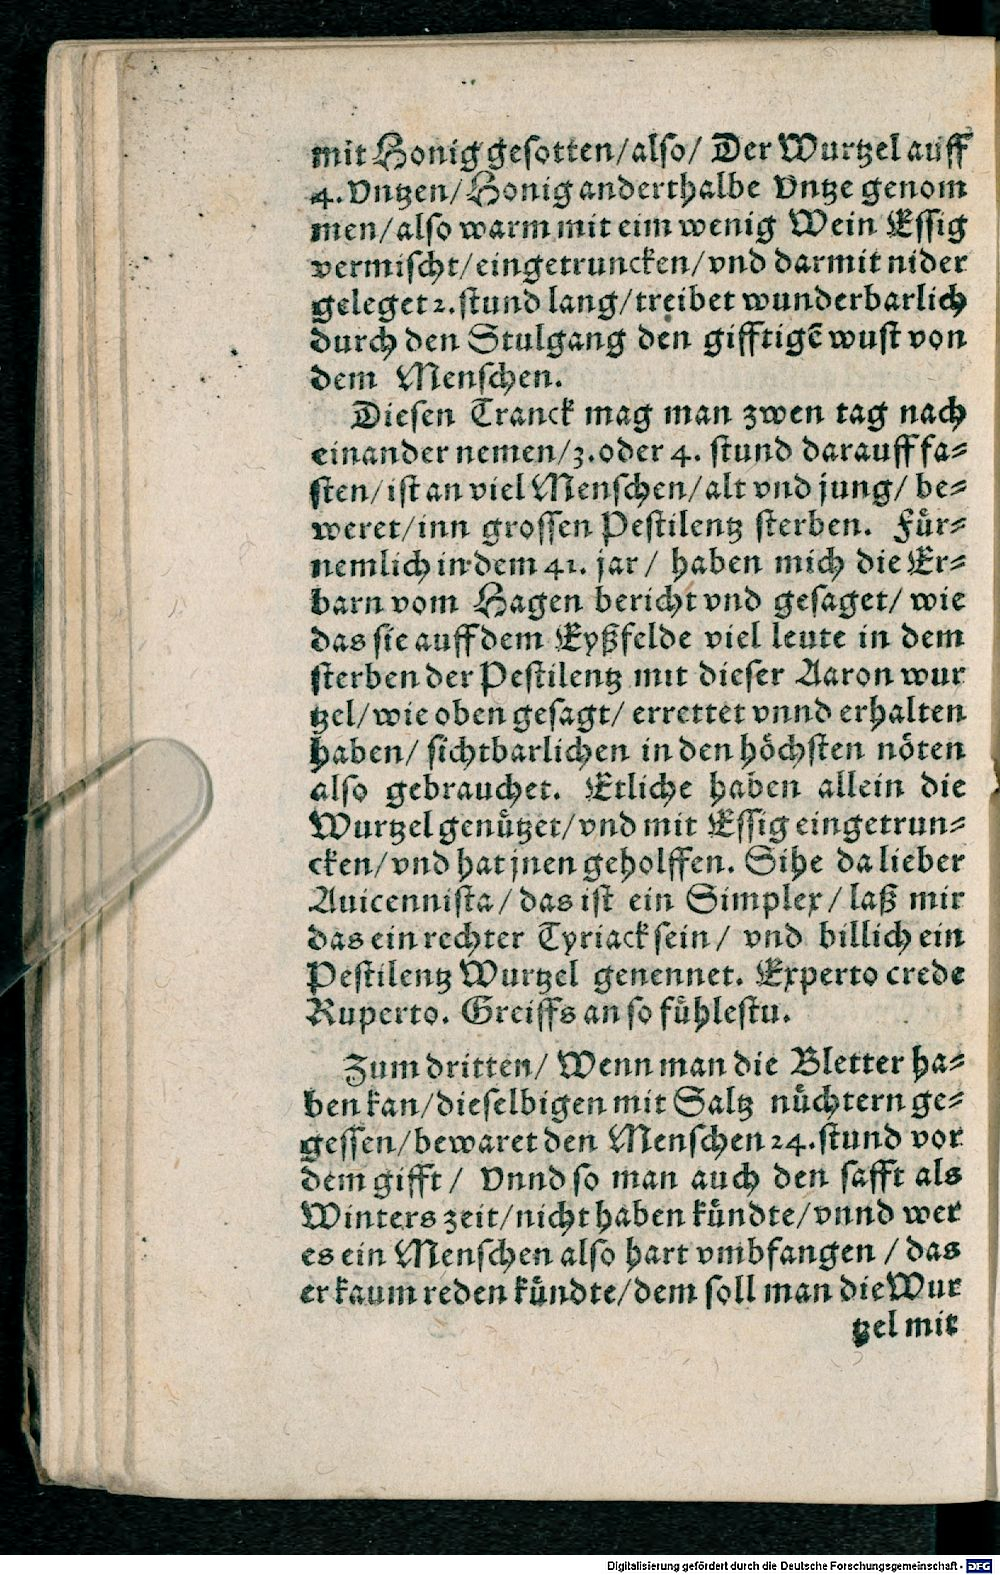 mit Honig gesotten/also/ Der Wurtzel auff
4. Vntzen/ Honig anderthalbe Vntze genom
men/ also warm mit eim wenig Wein Essig
vermischt/ eingetruncken/ vnd darmit nider
geleget 2. stund lang/ treibet wunderbarlich
durch den Stulgang den gifftigẽ wust von
dem Menschen.
Diesen Tranck mag man zwen tag nach
einander nemen/ 3. oder 4. stund darauff fa⸗
sten/ ist an viel Menschen/ alt vnd jung/ be⸗
weret/ inn grossen Pestilentz sterben. Fuͤr⸗
nemlich in dem 41. jar/ haben mich die Er⸗
barn vom Hagen bericht vnd gesaget/ wie
das sie auff dem Eyßfelde viel leute in dem
sterben der Pestilentz mit dieser Aaron wur
tzel/ wie oben gesagt/ errettet vnnd erhalten
haben/ sichtbarlichen in den hoͤchsten noͤten
also gebrauchet. Etliche haben allein die
Wurtzel genuͤtzet/ vnd mit Essig eingetrun⸗
cken/ vnd hat jnen geholffen. Sihe da lieber
Auicennista/ das ist ein Simplex/ laß mir
das ein rechter Tyriack sein/ vnd billich ein
Pestilentz Wurtzel genennet. Experto crede
Ruperto. Greiffs an so fuͤhlestu.
Zum dritten/ Wenn man die Bletter ha⸗
ben kan/ dieselbigen mit Saltz nuͤchtern ge⸗
gessen/ bewaret den Menschen 24. stund vor
dem gifft/ Vnnd so man auch den safft als
Winters zeit/ nicht haben kuͤndte/ vnnd wer
es ein Menschen also hart vmbfangen/ das
er kaum reden kuͤndte/ dem soll man die Wur
tzel mit
Digitalisierung gefördert durch die Deutsche Forschungsgemeinschaft - DFG